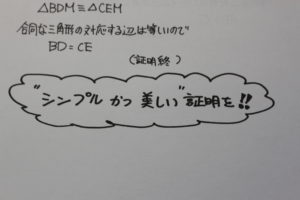 △BDM≡△CEM
合同な三角形の対応する辺は等しいので
BD=CE
(証明終)
"シンプル かつ 美しい" 証明を!!